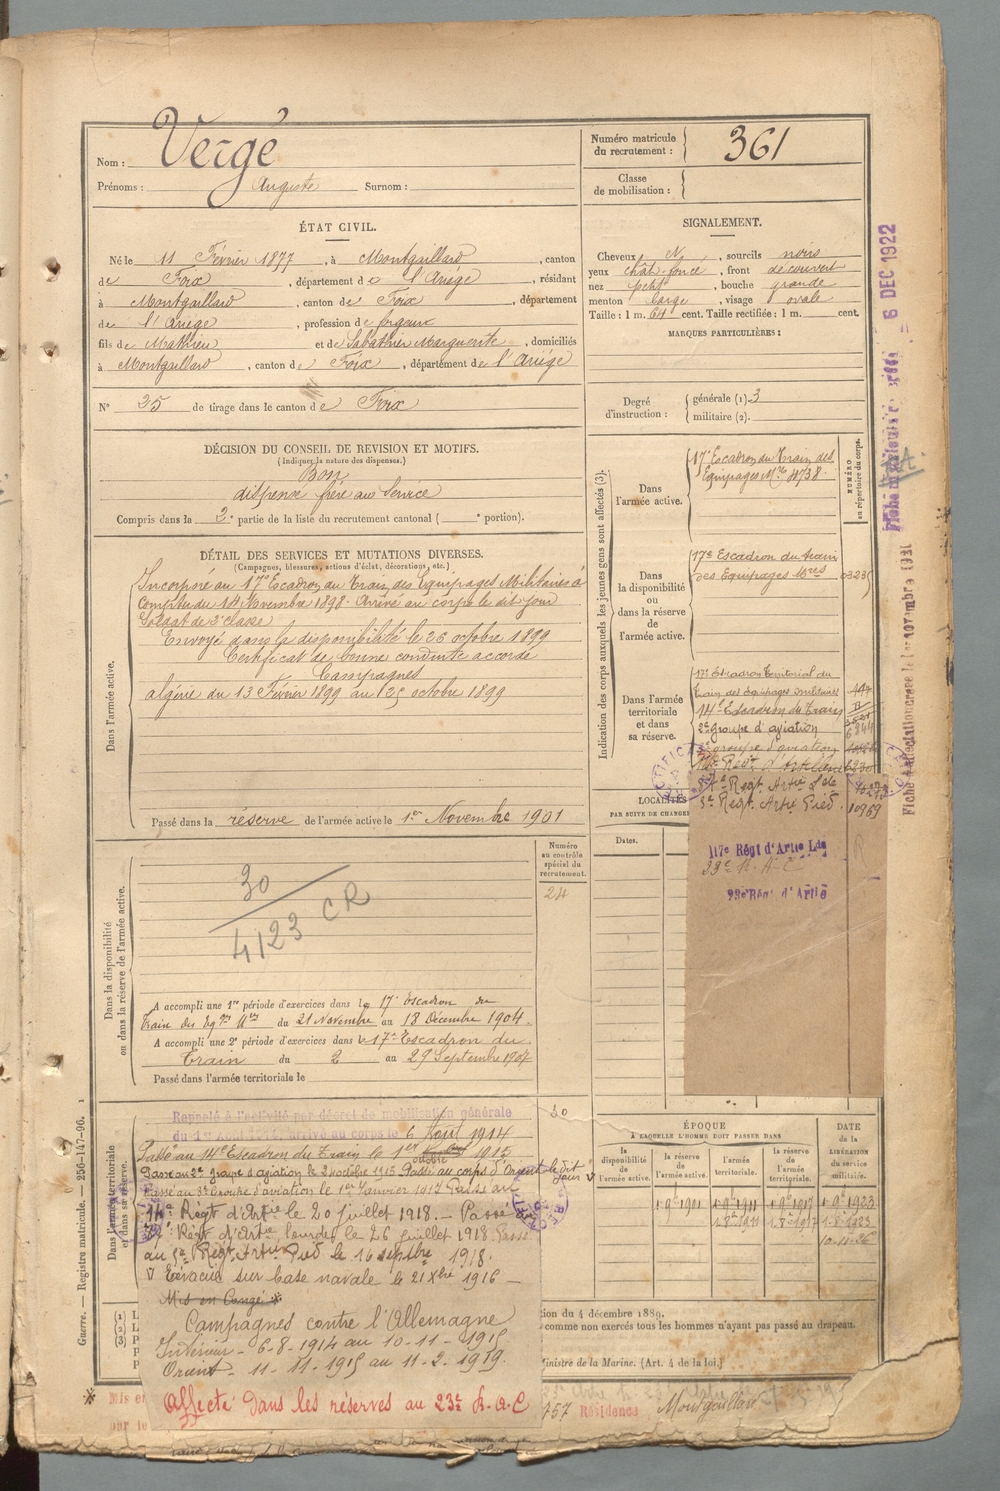 Nom : Vergé
Prénoms : Auguste Surnom :
Numéro matricule du recrutement : 361
Classe de mobilisation :
ÉTAT CIVIL.
Né le 11 Février 1877, à Montgaillard, canton
de Foix, département de l'Ariège, résidant
à Montgaillard, canton de Foix, département
de l'Ariège, profession de forgeur
fils de Mathieu et de Sabathier Marguerite, domiciliés
à Montgaillard, canton de Foix, département de l'Ariège
N° 25 de tirage dans le canton de Foix
SIGNALEMENT.
Cheveux N, sourcils noirs
yeux chât. foncé, front découvert
nez petit, bouche grande
menton large, visage ovale
Taille : 1 m. 64 cent. Taille rectifiée : 1 m. cent.
MARQUES PARTICULIÈRES :
Degré d'instruction : générale (1). 3
militaire (2).
DÉCISION DU CONSEIL DE REVISION ET MOTIFS.
(Indiquer la nature des dispenses.)
Bon
dispensé frère au service
Compris dans la 2e partie de la liste du recrutement cantonal ( e portion).
DÉTAIL DES SERVICES ET MUTATIONS DIVERSES.
(Campagnes, blessures, actions d'éclat, décorations, etc.)
Dans l'armée active.
Incorporé au 17e Escadron du Train des Equipages Militaires à
compter du 14 Novembre 1898. Arrivé au corps le dit jour
Soldat de 2e classe
Envoyé dans la disponibilité le 26 octobre 1899
Certificat de bonne conduite accordé
Campagnes
Algérie du 13 Février 1899 au 25 octobre 1899
Passé dans la réserve de l'armée active le 1er Novembre 1901
Indication des corps auxquels les jeunes gens sont affectés (3).
NUMÉRO au répertoire du corps.
Dans l'armée active.
17e Escadron du Train des
Equipages Mres 4738
Dans la disponibilité ou dans la réserve de l'armée active.
17e Escadron du train
des Equipages Mres 03235
Dans l'armée territoriale et dans sa réserve.
17e Escadron Territorial du
Train des équipages militaires
14e Escadron du Train
2e groupe d'aviation 6844
3e groupe d'aviation
Regt d'Artillerie
Regt Artie
5e Regt. Artie Pied 10969
117e Régt d'Artie Lde
23e R.A.C
23e Rég. d'Artie
LOCALITÉS
PAR SUITE DE CHANGE
Dates.
Dans la disponibilité ou dans la réserve de l'armée active.
Numéro au contrôle spécial du recrutement.
24
30
4123 CR
A accompli une 1re période d'exercices dans le 17e Escadron du
Train des Eqges Mres du 21 Novembre au 18 Décembre 1904.
A accompli une 2e période d'exercices dans le 17e Escadron du
Train du 2 au 29 Septembre 1907
Passé dans l'armée territoriale le
Dans l'armée territoriale et dans sa réserve.
30
Rappelé à l'activité par décret de mobilisation générale
du 1er Août 1914, arrivé au corps le 6 Août 1914
Passé au 14e Escadron du Train le 1er octobre 1915
Passé au 2e groupe d'aviation le 2 octobre 1915 Passé au corps d'Orient le dit jour
Passé au 3e Groupe d'aviation le 1er Janvier 1917 Passé au
Régt d'Artie le 20 juillet 1918. — Passé
Régt d'Artie lourde le 26 juillet 1918 Passé
au 5e Régt. Artie Pied le 16 septbre 1918.
Evacué sur base navale le 21 Xbre 1916 —
Mis en Congé
Campagnes contre l'Allemagne
Intérieur - 6-8-1914 au 10-11-1915
Orient - 11-11-1915 au 11-2-1919.
Affecté dans les réserves au 23e R.A.C
ÉPOQUE
A LAQUELLE L'HOMME DOIT PASSER DANS
la disponibilité de l'armée active.
la réserve de l'armée active. 1 9bre 1901
l'armée territoriale. 1 9bre 1911
1-8-1911
la réserve de l'armée territoriale. 1 9bre 1917
1-8-1917
DATE de la LIBÉRATION du service militaire.
1-9-1923
1-8-1923
10-11-26
tion du 4 décembre 1889.
comme non exercés tous les hommes n'ayant pas passé au drapeau.
Ministre de la Marine. (Art. 4 de la loi.)
757 Résidence Montgaillard
Mis en
par le
Guerre. — Registre matricule. — 256-147-96.
6 DEC 1922
Fiche